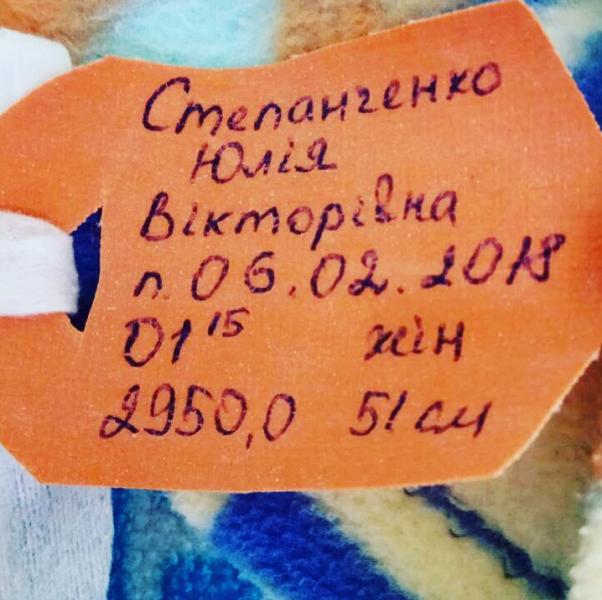 Степанченко
Юлія
Вікторівна
п. 06.02.2018
01 15 жін
2950,0 51 см